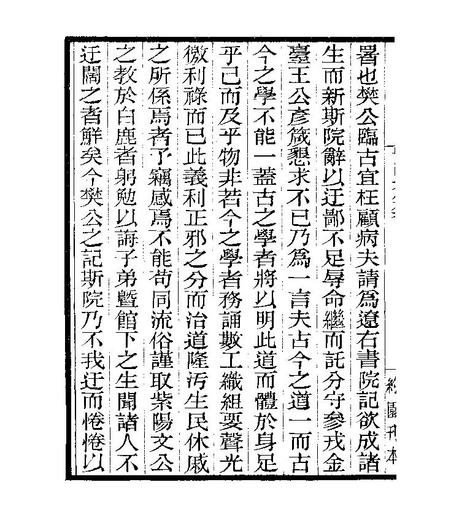 畧也樊公臨古宜枉顧病夫請爲遼右書院記欲成諸
生而新斯院辭以迂鄙不足辱命繼而託分守參戎金
臺王公彥箴懇求不已乃爲一言夫古今之道一而古
今之學不能一蓋古之學者將以明此道而體於身足
乎己而及乎物非若今之學者務誦數工織組要聲光
徼利祿而已此義利正邪之分而治道隆汚生民休戚
之所係焉者予竊感焉不能苟同流俗謹取紫陽文公
之教於白鹿者躬勉以誨子弟曁館下之生聞諸人不
迂闊之者鮮矣今樊公之記斯院乃不我迂而惓惓以